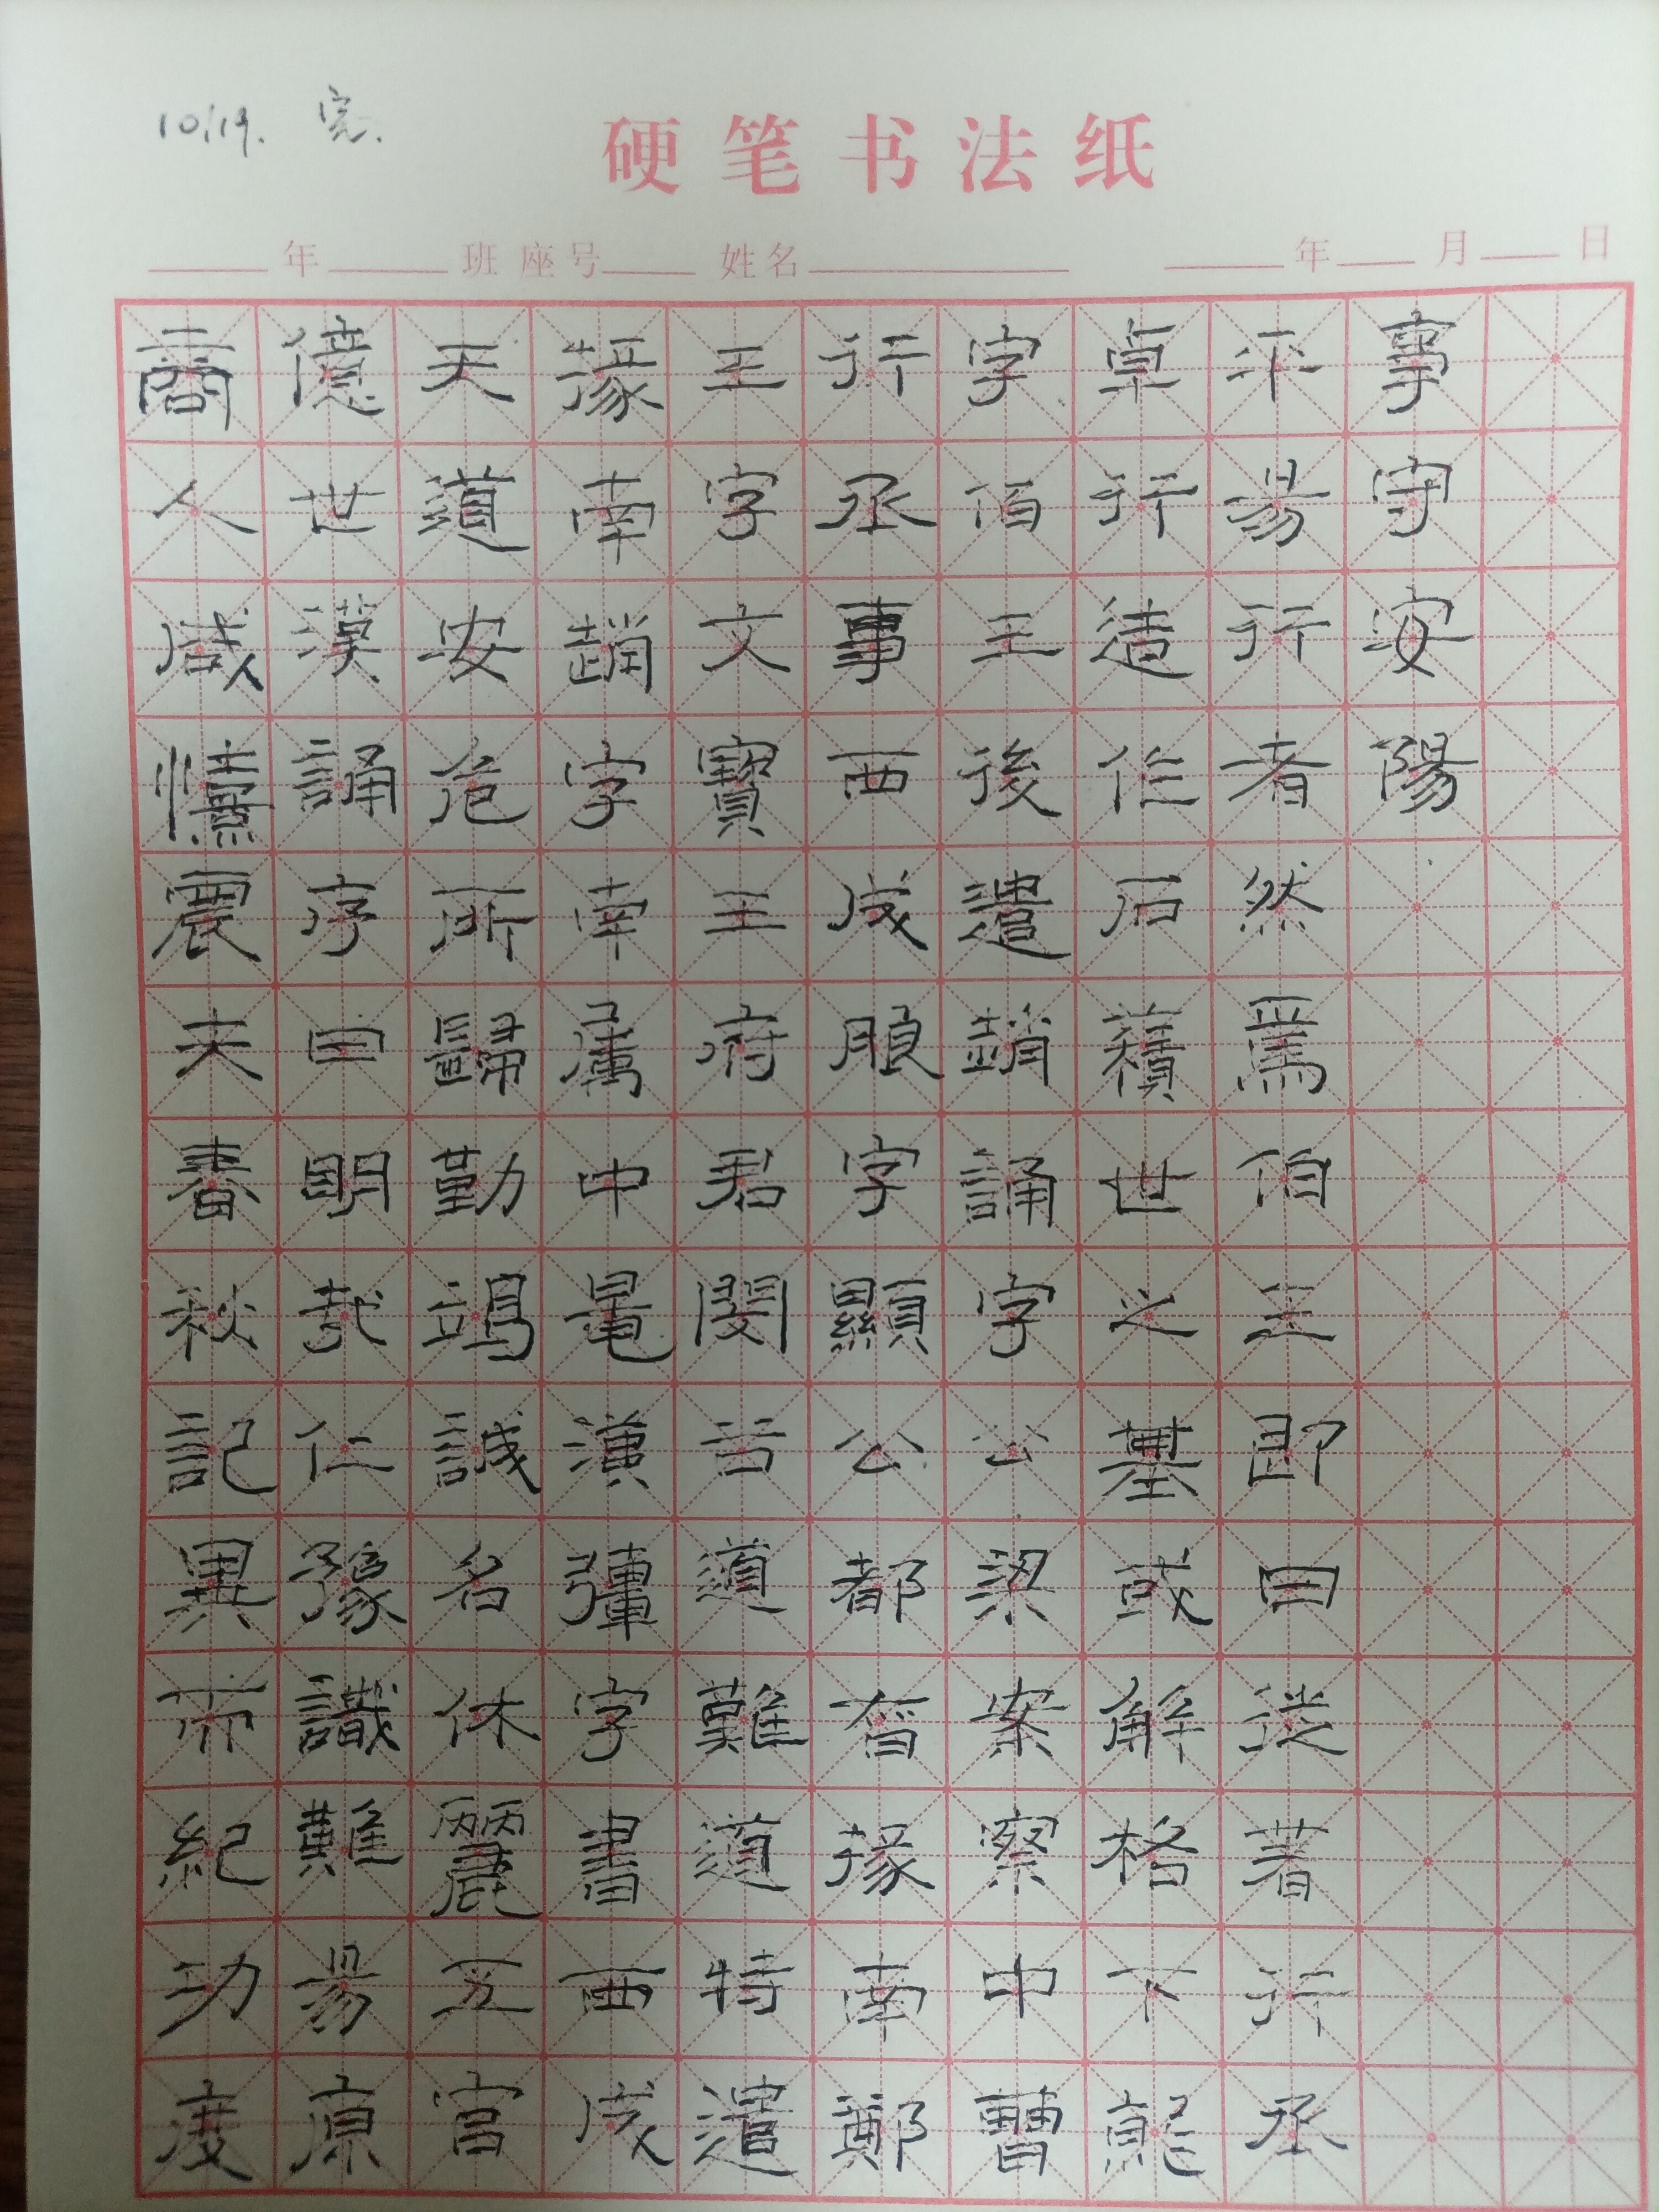 10.19. 完.
硬笔书法纸
年 班 座号 姓名 年 月 日
商人咸憘農夫春秋記異而紀功度
億世漢誦序曰明哉仁豫識難易原
天道安危所歸勤竭誠名休麗五官
掾南趙字南屬中晁漢彊字書西成
王字文寶王府君閔谷道難道特遣
行丞事西成朖字顯公都督掾南鄭
字伯王後遣趙誦字公梁案察中曹
卓行造作石積世之基或解格下就
平易行者然焉伯玉即日徙署行丞
事守安陽